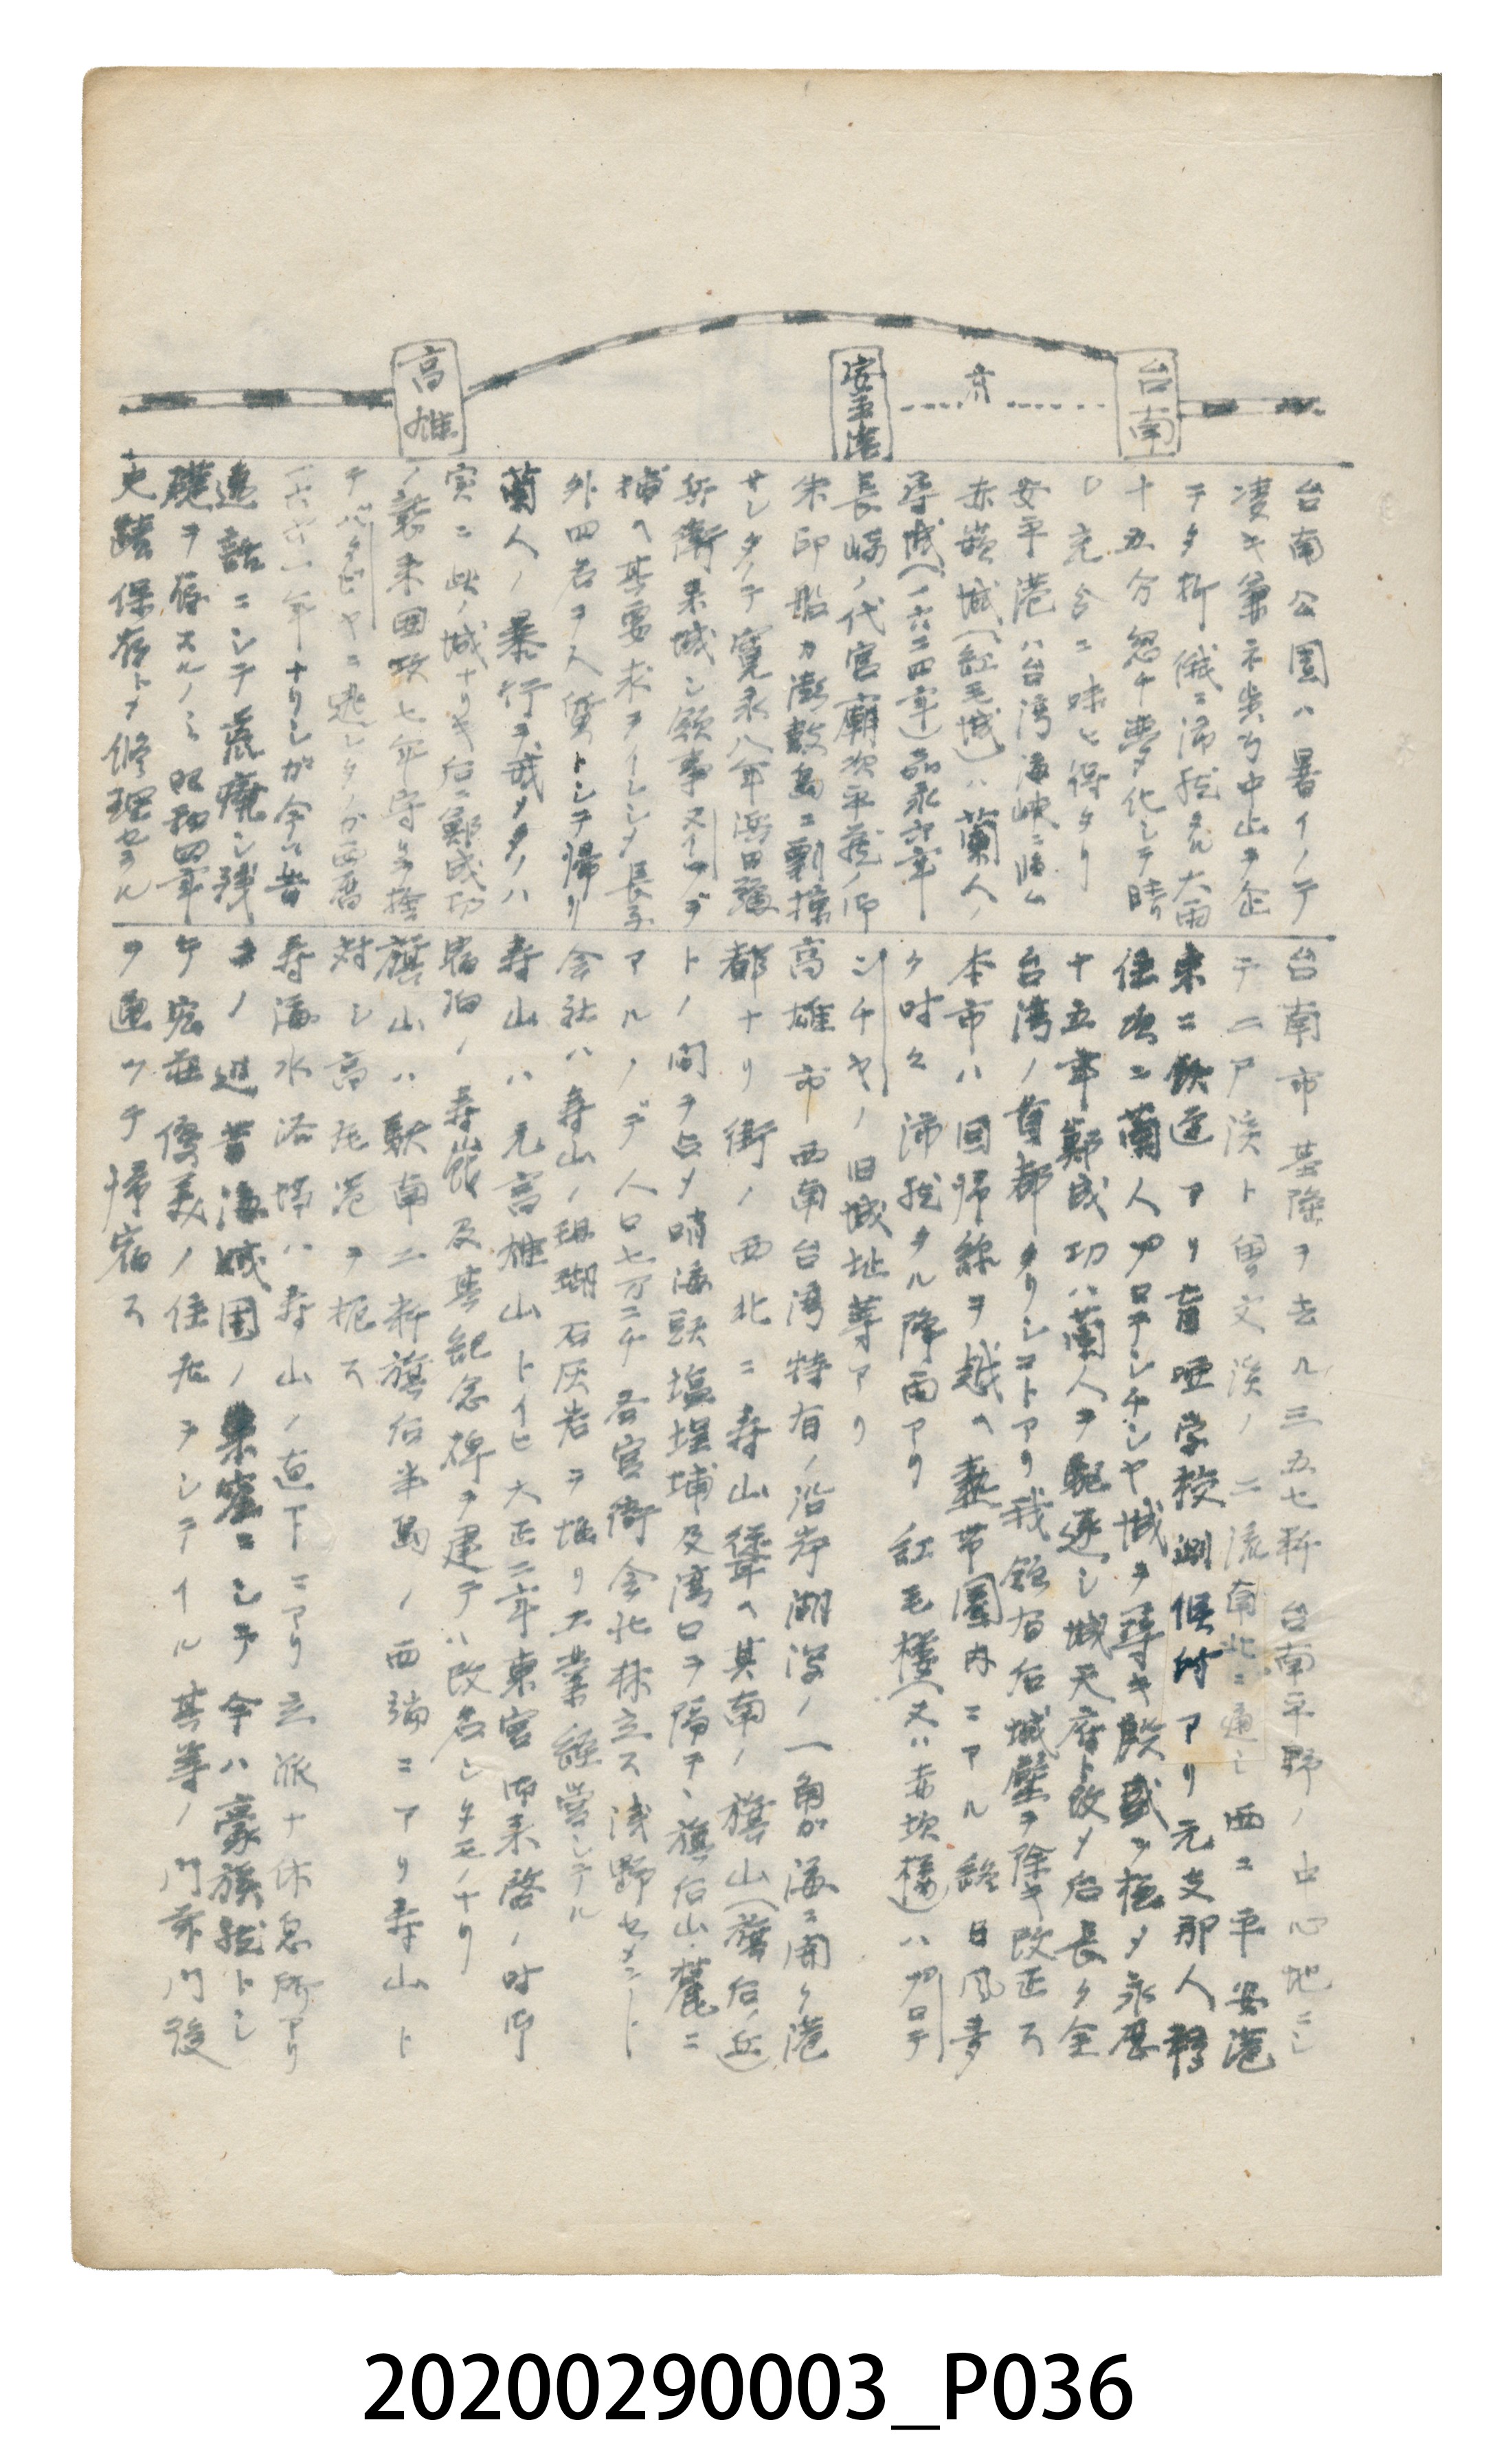 台南
安平港
高雄
台南公園ハ暑イノデ
凄キ
ヲタ折俄ニ沛然タル大雨
十五分忽チ夢ト化シテ晴
安平港ハ台湾海峡ニ臨ム
赤嵌城(紅毛城)ハ蘭人ノ
(一六二四年)
長崎ノ代官
朱印船ガ澎湖島ニ
サレタノデ寛永八年浜田弥
兵衛来城シ領事ヌイツヲ
捕ヘ其要求ヲイレシメ長子
外四名ヲ人質トシテ帰リ
蘭人ノ暴行ヲ戒メタノハ
実ニ此ノ城ナリキ后ニ鄭成功
ノ襲来囲攻七年守ヲ捨
テバタビヤニ逃レタノガ西暦
一六六一年ナリシガ今ハ昔
話ニシテ荒廃シ残
礎ヲ存スルノミ昭和四年
史蹟保存トメ修理セラル
台南市基隆ヲ去ル三五七粁台南平野ノ中心地ニシ
テ二户渓ト曽文渓ノ二流南北ニ通シ西ニ平安港
東ニ鉄道アリ盲唖学校測候所アリ元支那人移
住次ニ蘭人プロテンチシヤ城ヲ築キ殷盛ヲ極メ永歴
十五年鄭成功ハ蘭人ヲ駆逐シ城天府ト改メ后長ク全
台湾ノ首都タリシコトアリ我領有后城壁ヲ除キ改正ス
本市ハ回帰線ヲ越ヘ熱帯圏内ニアル終日風多
ク時々沛然タル降雨アリ 紅毛楼(又ハ赤坎楼)ハプロテ
ンチヤノ旧城址等アリ
高雄市 西南台湾特有ノ沿岸湖沼ノ一角ガ海ニ開ク港
都ナリ街ノ西北ニ寿山聳ヘ其南ノ旗山(旗后ノ丘)
トノ間ヲ占メ哨海頭塩埕埔及湾口ヲ隔テ、旗后山麓ニ
アルノデ人口七万二千 各官衙会社林立ス浅野セメント
会社ハ寿山ノ珊瑚石灰岩ヲ堀リ工業経営シテル
寿山ハ元高雄山トイヒ大正二年東宮御来啓ノ時御
宿泊ノ寿山館及其記念碑ヲ建テハ改名シタモノナリ
旗山ハ駅南二粁旗后半島ノ西端ニアリ寿山ト
対シ高雄港ヲ扼ス
寿海水浴場ハ寿山ノ直下ニアリ立派ナ休息所アリ
ノ辺昔海賊団ノ巣窟ニシテ今ハ豪族然トシ
テ宏荘優美ノ住居ヲシテイル其等ノ門前門後
ヲ通ツテ帰宿ス
20200290003_P036